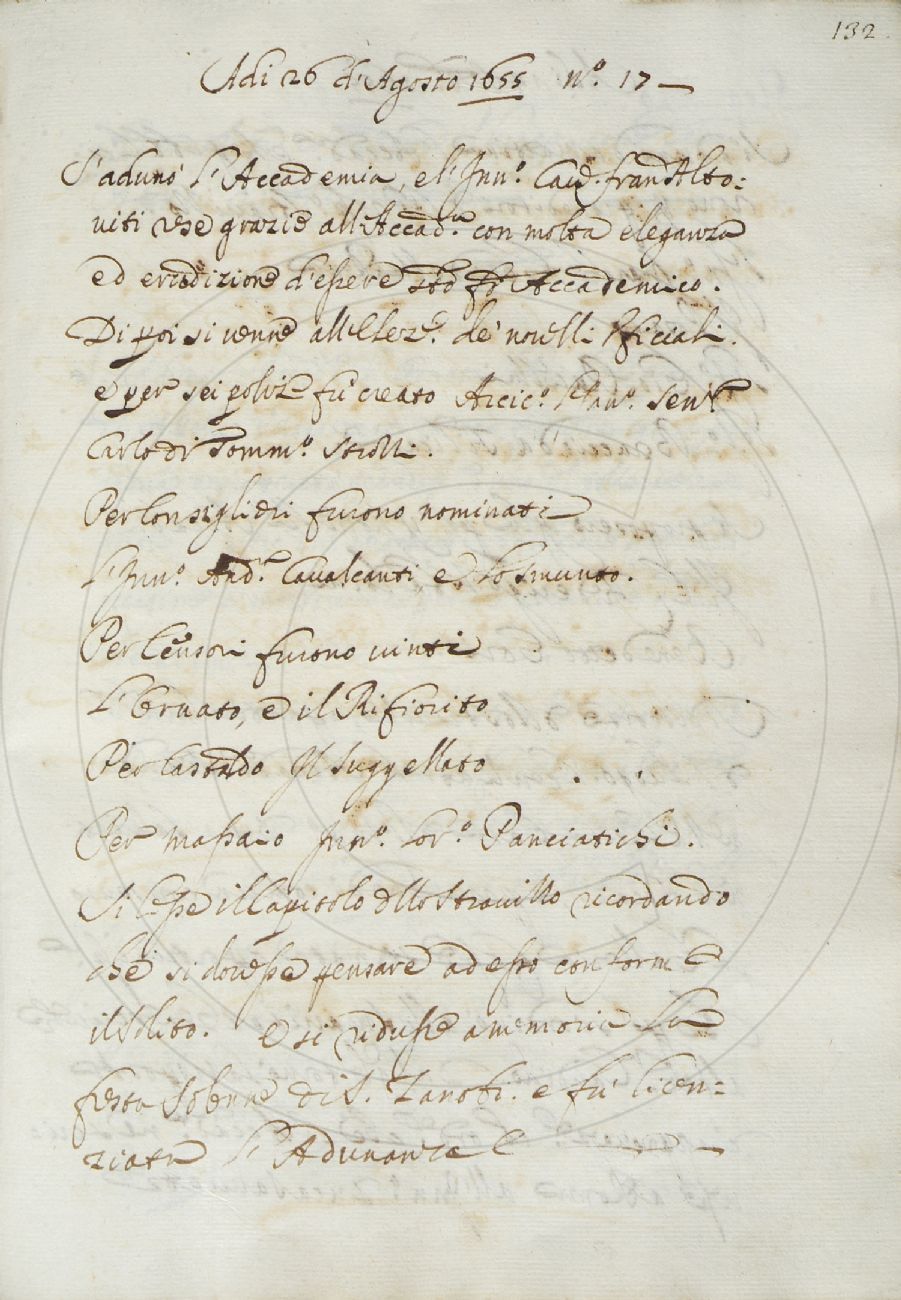 132
Adi 26 d'Agosto 1655 n.º 17
S'adunò l'Accademia, e l'Inn.º Cav. Fran Alto=
viti rese grazie all'Accad.ª con molta eleganza
ed erudizione d'essere sto fº Accademico.
Di poi si venne all'Elez.ᵉ de' novelli Uficiali.
e per sei polize fù creato Arcic.º l'Inn.º Sen.ʳ
Carlo di Tomm.º Strozzi.
Per Consiglieri furono nominati
L'Inn.º And.ᵃ Cavalcanti e lo Smunto.
Per Censori furono vinti
L'Ornato, e il Rifiorito
Per Castaldo Il Suggellato
Per Massaio Inn.º Lor.º Panciatichi.
Si lesse il Capitolo dllo Stravizzo ricordando
che si dovesse pensare ad esso conforme
il solito. e si ridusse a memoria la
festa solenne di S. Zanobi. e fù licen=
ziata l'Adunanza